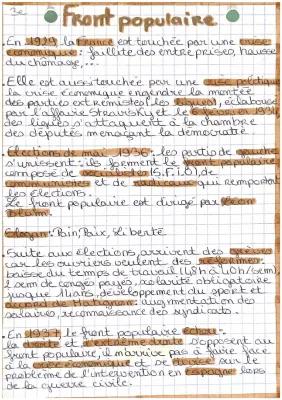 3e
Front populaire
. En 1929 la France est touchée par une crise
économique : faillite des entreprises, hausse
du chômage,...
. Elle est aussi touchée par une crise politique
la crise économique engendre la montée
des partis extrémistes (les ligues), éclaboussé
par l'affaire Stavisky et le 6 février 1934
des ligues s'attaquent à la chambre
des députés menaçant la démocratie
. Elections de mai 1936 : les partis de gauche
s'unissent : ils forment le front populaire
composé de socialistes (S.F.I.O), de
communistes et de radicaux qui remportent
les élections.
Le front populaire est dirigé par Léon
Blum.
. Slogan : Pain, Paix, Liberté
. Suite aux élections, arrivent des grèves
car les ouvriers veulent des réformes :
baisse du temps de travail (48h à 40h/sem),
sem de congés payés, scolarité obligatoire
jusque 14 ans, développement du sport et
accord de Matignon : augmentation des
salaires, reconnaissance des syndicats.
. En 1937 le front populaire échoue :
la droite et extrême droite s'opposent au
front populaire, il n'arrive pas à faire face
à la crise économique et se divise sur le
problème de l'intervention en Espagne lors
de la guerre civile.